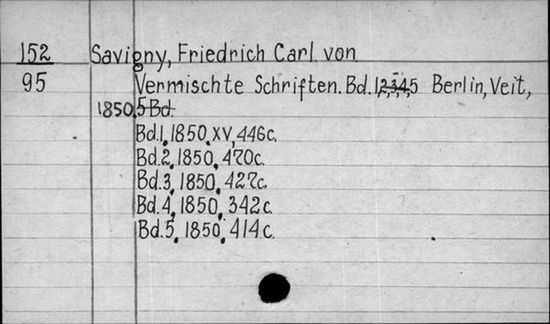 152 Savigny, Friedrich Carl von
95 Vermischte Schriften. Bd. 1,2,3,4,5 Berlin, Veit,
1850. 5 Bd.
Bd.1, 1850, XV, 446c.
Bd.2, 1850, 470c.
Bd.3, 1850, 427c.
Bd.4, 1850, 342c.
Bd.5, 1850, 414c.